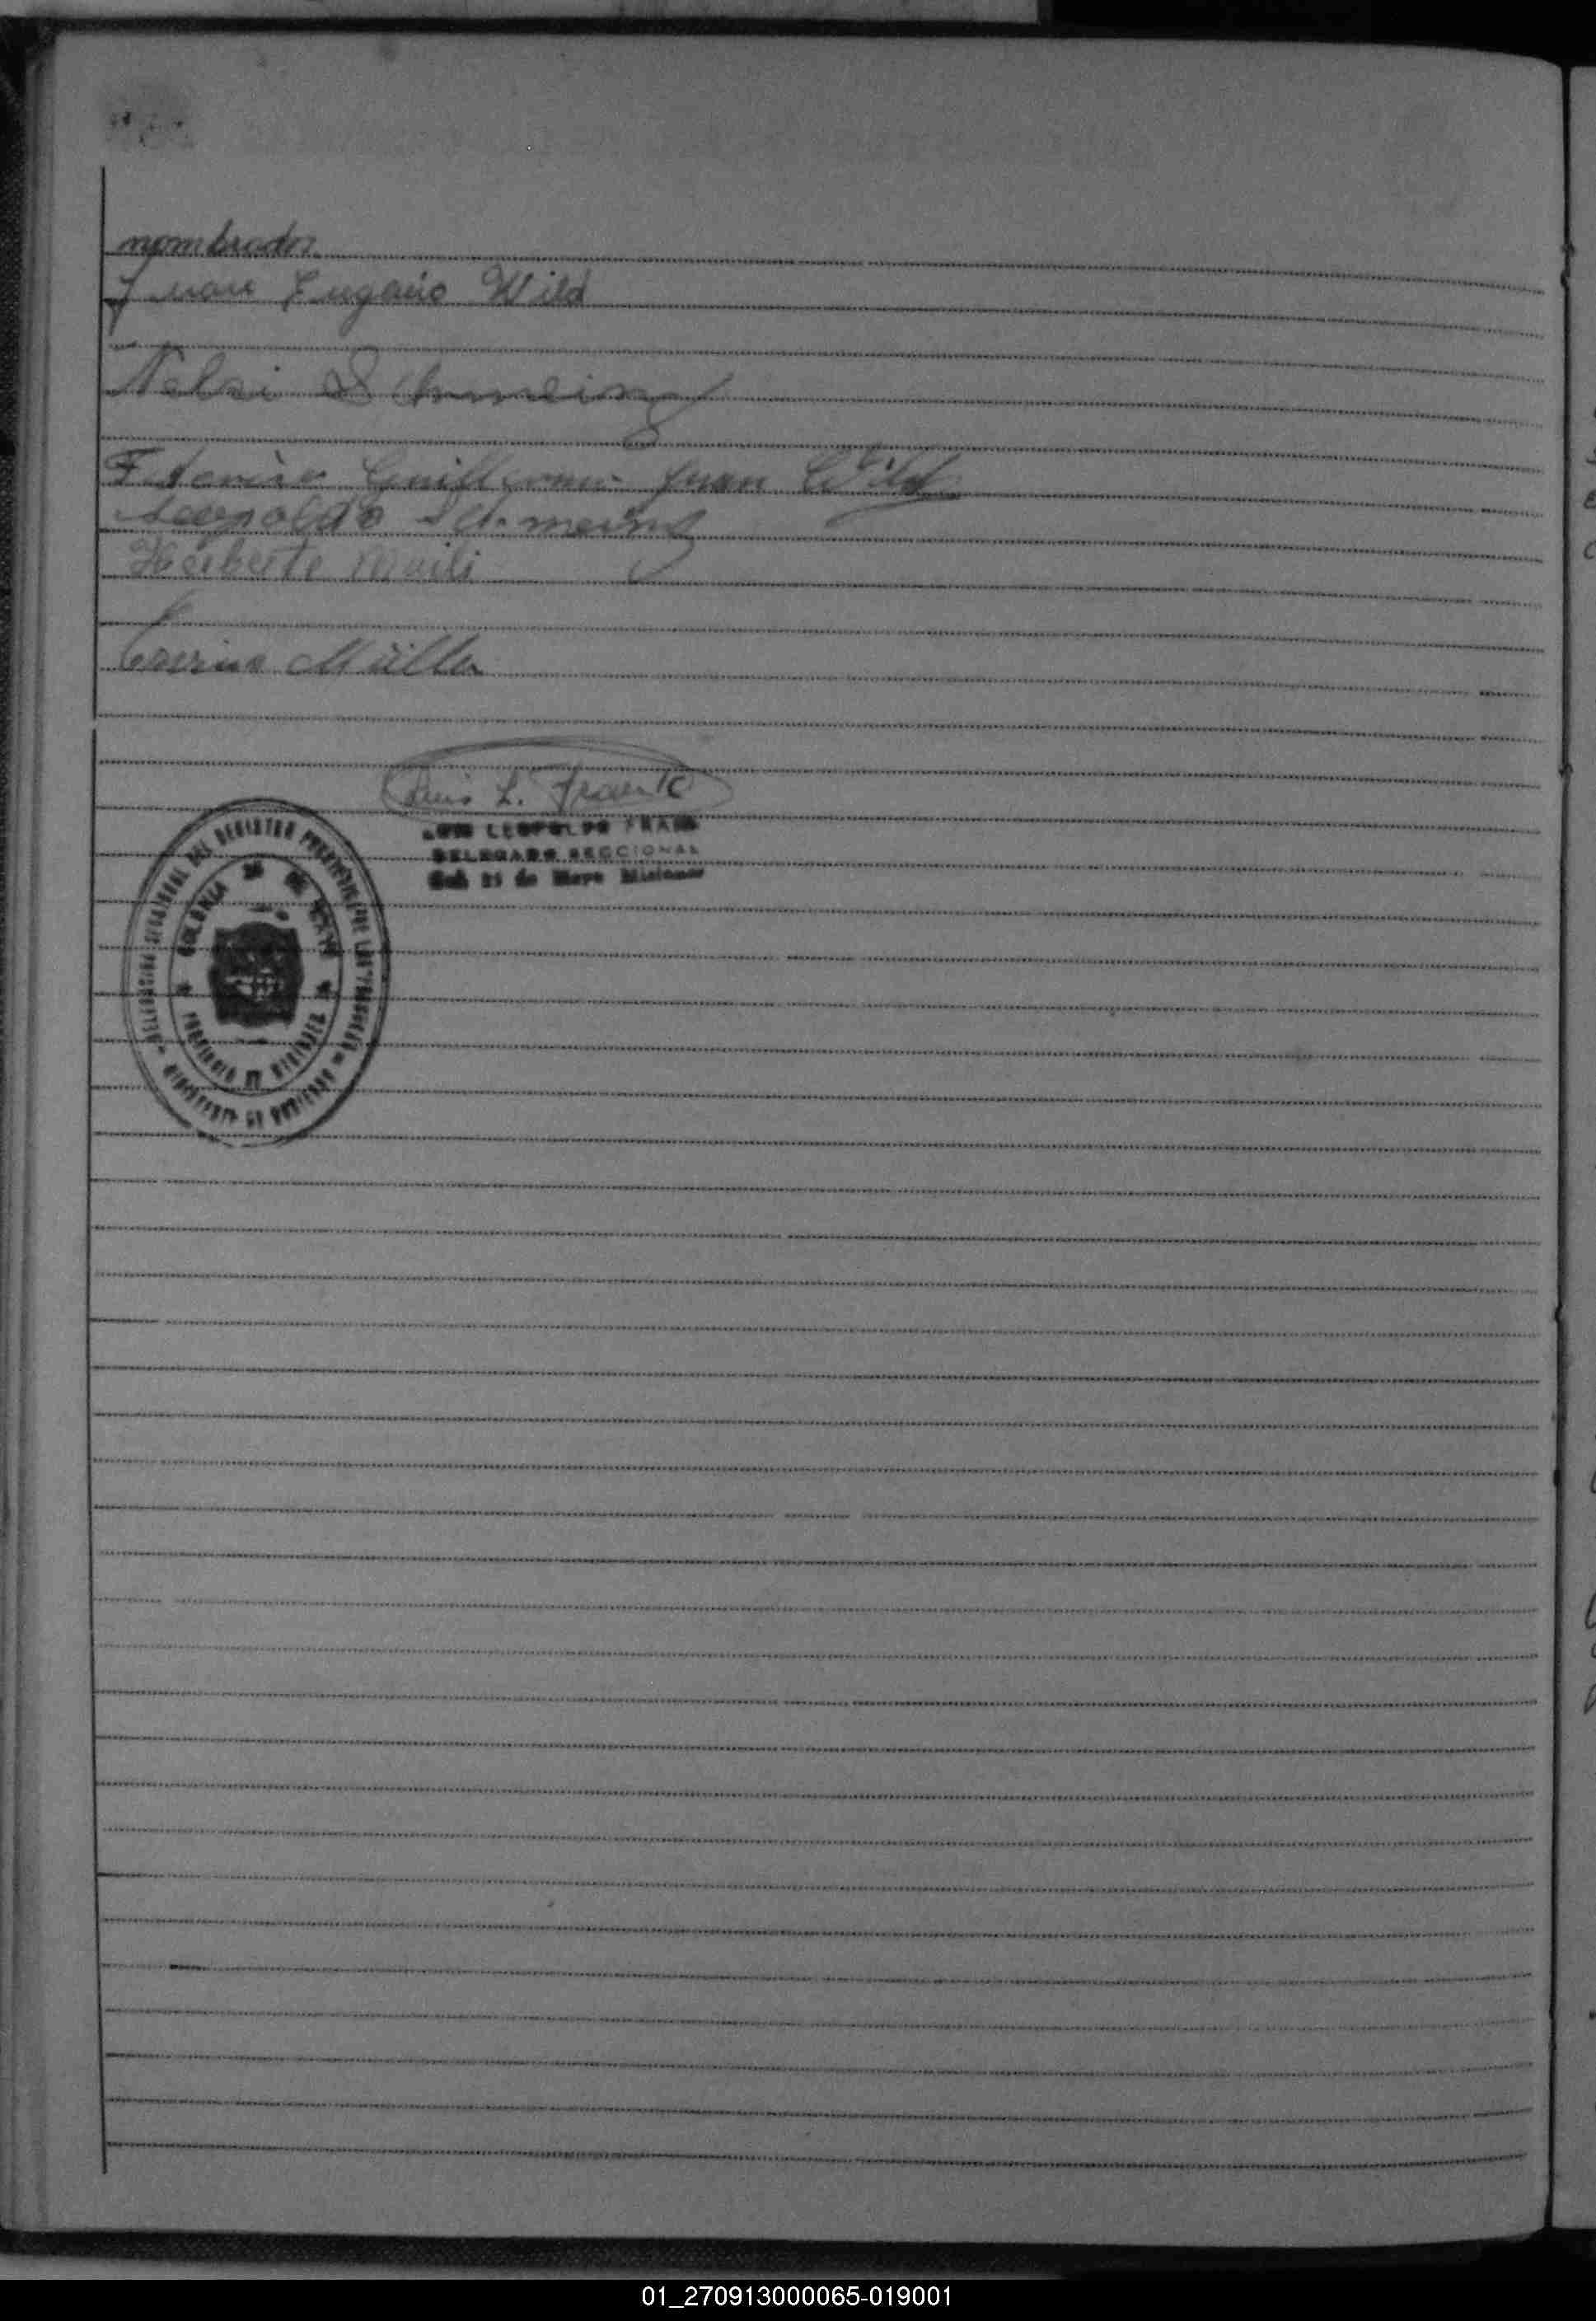 nombrados.
Juan Eugenio Wild
Nelsi Schmeing
Guillermo Juan Wild
Leopoldo Schmeing
Heriberto
Müller
Luis L. Frank
LUIS LEOPOLDO FRANK
DELEGADO SECCIONAL
Col. 25 de Mayo Misiones
DEL REGISTRO PROVINCIAL DE LAS PERSONAS
COLONIA 25 DE MAYO
PROVINCIA DE MISIONES
01_270913000065-019001